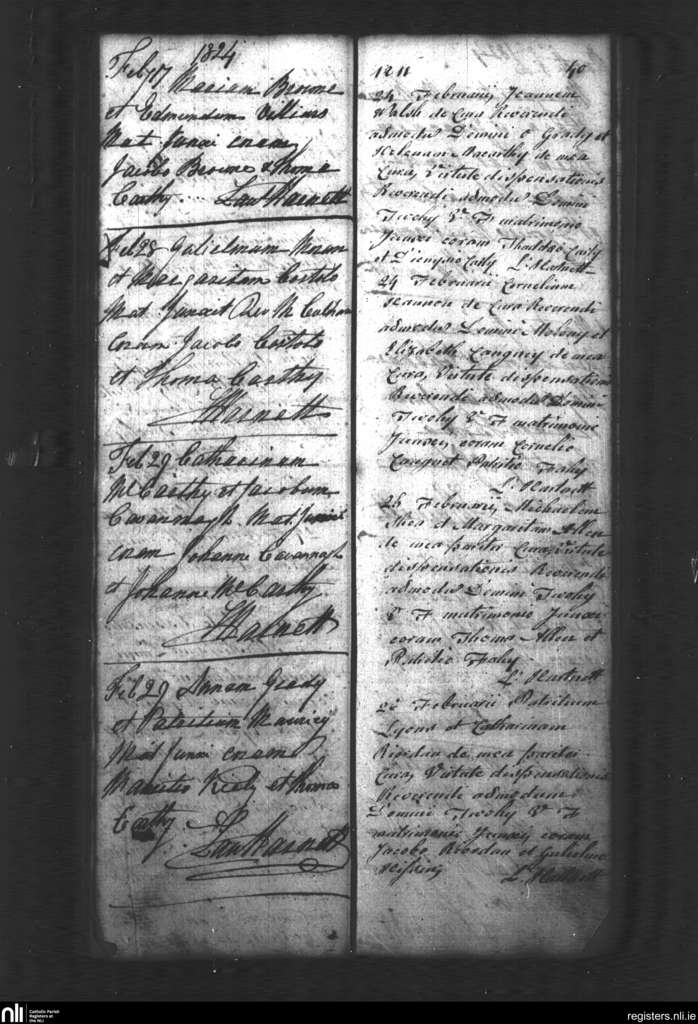 1824
Feb 17 Mariam Browne
et Edmundum Villiers
Mat. Junxi coram
Jacobo Browne & Thoma
Carthy. Lau Harnett
Feb 28 Gulielmum
et Margaritam Costolo
Mat. Junxit Rev M
Coram Jacobo Costolo
et Thoma Carthy
LHarnett
Feb 29 Catharinam
McCarthy et Jacobum
Cavannagh Mat. Junxi
coram Johanne Cavannagh
et Johanne McCarthy
LHarnett
Feb 29 Annam Grady
et Patritium
Mat Junxi coram
Mauritio Kiely et Thoma
Carthy
Lau Harnett
40
24 Februarij Joannem
Walsh de Cura Reverendi
admodum Domini O Grady et
Helenam Macarthy de mea
Cura, Virtute dispensationis
Reverendi admodum Domini
Twohy V. F matrimonio
Junxi coram Thaddeo
et Dionysio L. Hartnett
24 Februarii Cornelium
de Cura Reverendi
admodum Domini Molony et
Elizabeth de mea
Cura Virtute dispensationis
Reverendi admodum Domini
Twohy V. F matrimonio
Junxi, coram Cornelio
et Patritio Fahy
L. Hartnett
26 Februarij Michaelem
Shea et Margaritam Allen
de mea pariter Cura, Virtute
dispensationis Reverendi
admodum Domini Twohy
V. F matrimonio Junxi
coram Thoma Allen et
Patritio Fahy
L. Hartnett
26 Februarii Patritium
Lyons et Catharinam
Riordan de mea pariter
Cura, Virtute dispensationis
Reverendi admodum
Domini Twohy V. F
matrimonio Junxi coram
Jacobo Riordan et Gulielmo
L. Hartnett
nli
Catholic Parish
Registers at
the NLI
registers.nli.ie